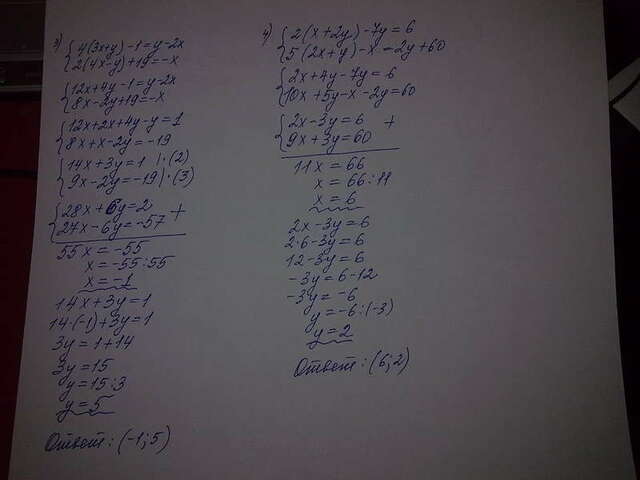 3) {4(3x+y)-1=y-2x
{2(4x-y)+19=-x
{12x+4y-1=y-2x
{8x-2y+19=-x
{12x+2x+4y-y=1
{8x+x-2y=-19
{14x+3y=1 |·(2)
{9x-2y=-19 |·(3)
{28x+6y=2 +
{27x-6y=-57
55x=-55
x=-55:55
x=-1
14x+3y=1
14·(-1)+3y=1
3y=1+14
3y=15
y=15:3
y=5
Ответ: (-1;5)
4) {2(x+2y)-7y=6
{5(2x+y)-x=2y+60
{2x+4y-7y=6
{10x+5y-x-2y=60
{2x-3y=6 +
{9x+3y=60
11x=66
x=66:11
x=6
2x-3y=6
2·6-3y=6
12-3y=6
-3y=6-12
-3y=-6
y=-6:(-3)
y=2
Ответ: (6;2)